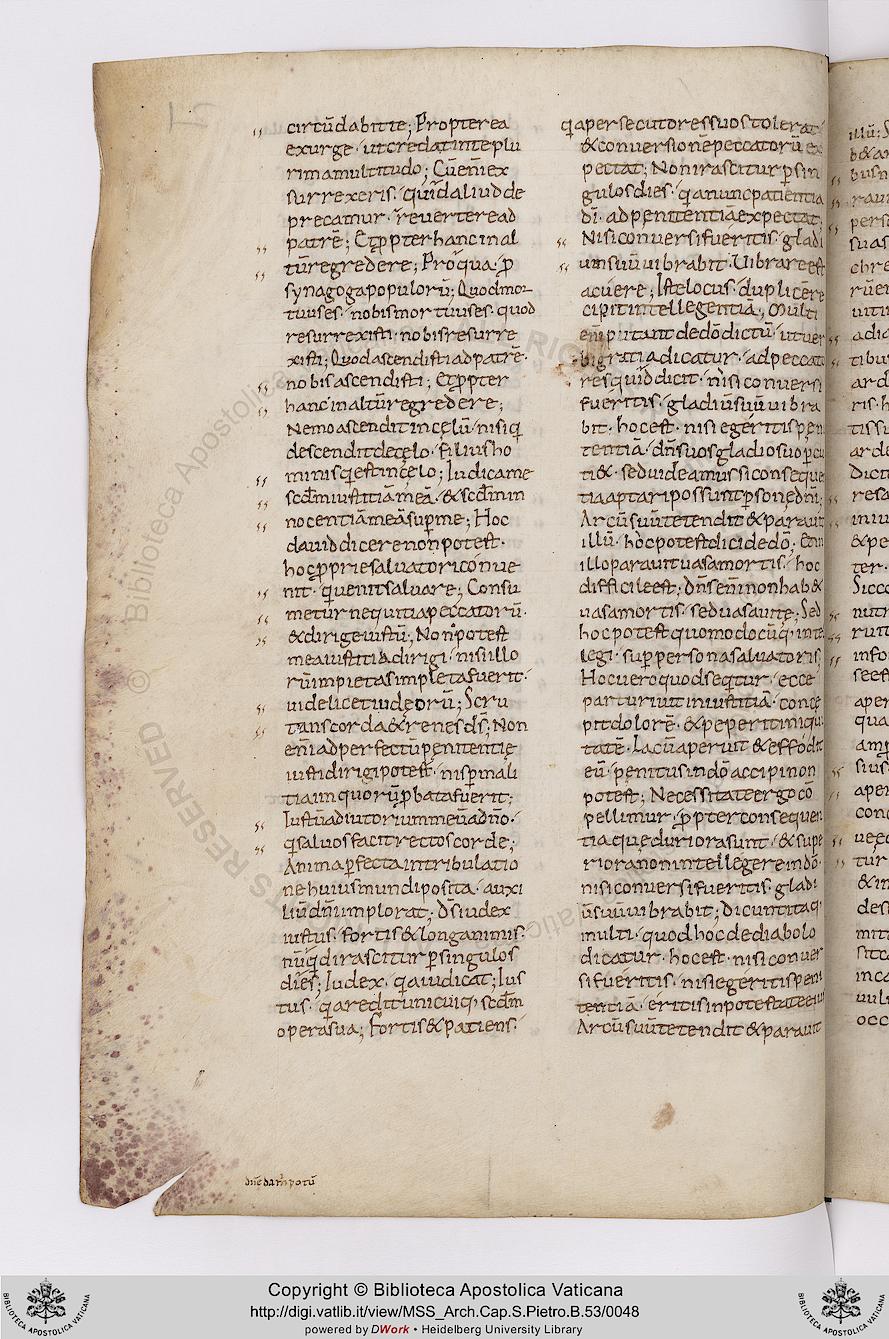 circūdabitte; Propterea
exurge · ut credat in te plu
rima multitudo; Cū enī ex
surrexeris · quid aliud de
precamur · revertere ad
patrē; Et ꝓpter hanc in al
tū regredere; Pro qua · ꝓ
synagoga populorū; Quod mor
tuus es · nobis mortuus es · quod
resurrexisti · nobis resurre
xisti; Quod ascendisti ad patrē ·
nobis ascendisti; Et ꝓpter
hanc in altū regredere;
Nemo ascendit in cęlū · nisi qi
descendit de cęlo · filius ho
minis qi est in cęlo; Iudica me
scdm̄ iustitiā meā · & scdm̄ in
nocentiā meā super me; Hoc
david dicere non potest ·
hoc ꝓprie salvatori conve
nit · qi venit salvare; Consu
metur nequitia peccatorū ·
& dirige iustū; Non potest
mea iustitia dirigi · nisi illo
rū impietas impleta fuerit ·
videlicet iudeorū; Scru
tans corda & renes d̄s; Non
enī ad perfectū penitentię
iusti dirigi potest · nisi ꝑ mali
tia iniquorū ꝓbata fuerit;
Iustū adiutoriū meū a dn̄o ·
qi salvos facit rectos corde;
Anima ꝑfecta in tribulatio
ne huius mundi posita · auxi
liū dn̄i implorat; D̄s iudex
iustus · fortis & longanimis ·
nūqid irascitur ꝑ singulos
dies; Iudex · qia iudicat; Ius
tus · qia reddit unicuiq; scdm̄
opera sua; Fortis & patiens ·
qia persecutores suos tolerat
& conversionē peccatorū ex
pectat; Non irascitur ꝑ sin
gulos dies · qia nunc patientia
dī · ad penitentiā expectat ·
Nisi conversi fueritis · gladi
um suū vibrabit · Vibrare est
acuere; Iste locus · duplicē re
cipit intellegentiā; Multi
enī putant de dō dictū · ut ver
bi gratia dicatur · ad peccato
res quid dicit · nisi conversi
fueritis · gladiū suū vibra
bit · hoc est · nisi egeritis peni
tentiā · dn̄s vos gladio suo ꝑcu
ti& · sed videamus si conseque
tia aptari possunt ꝑsonę dn̄i;
Arcū suū tetendit & paravit
illū · hoc potest dici de dō · &in
illo paravit vasa mortis · hoc
difficile est; Dn̄s enī non hab&
vasa mortis · sed vasa vitę; Sed
hoc potest quomodocūq; inte
legi · super persona salvatoris;
Hoc vero quod seqitur · ecce
parturiit iniustitiā · conce
pit dolorē · & peperit iniqui
tatē · Lacū aperuit & effodit
eū · penitus in dō accipi non
potest; Necessitate ergo cō
pellimur · ꝓpter consequen
tia que duriora sunt · & supe
riora non intellegere in dō ·
nisi conversi fueritis · gladi
ū suū vibrabit; Dicunt itaq;
multi · quod hoc de diabolo
dicatur · hoc est · nisi conver
si fueritis · nisi egeritis peni
tentiā · eritis in potestate eius
Arcū suū tetendit & paravit
Copyright © Biblioteca Apostolica Vaticana
http://digi.vatlib.it/view/MSS_Arch.Cap.S.Pietro.B.53/0048
powered by DWork • Heidelberg University Library
BIBLIOTECA APOSTOLICA VATICANA
BIBLIOTECA APOSTOLICA VATICANA